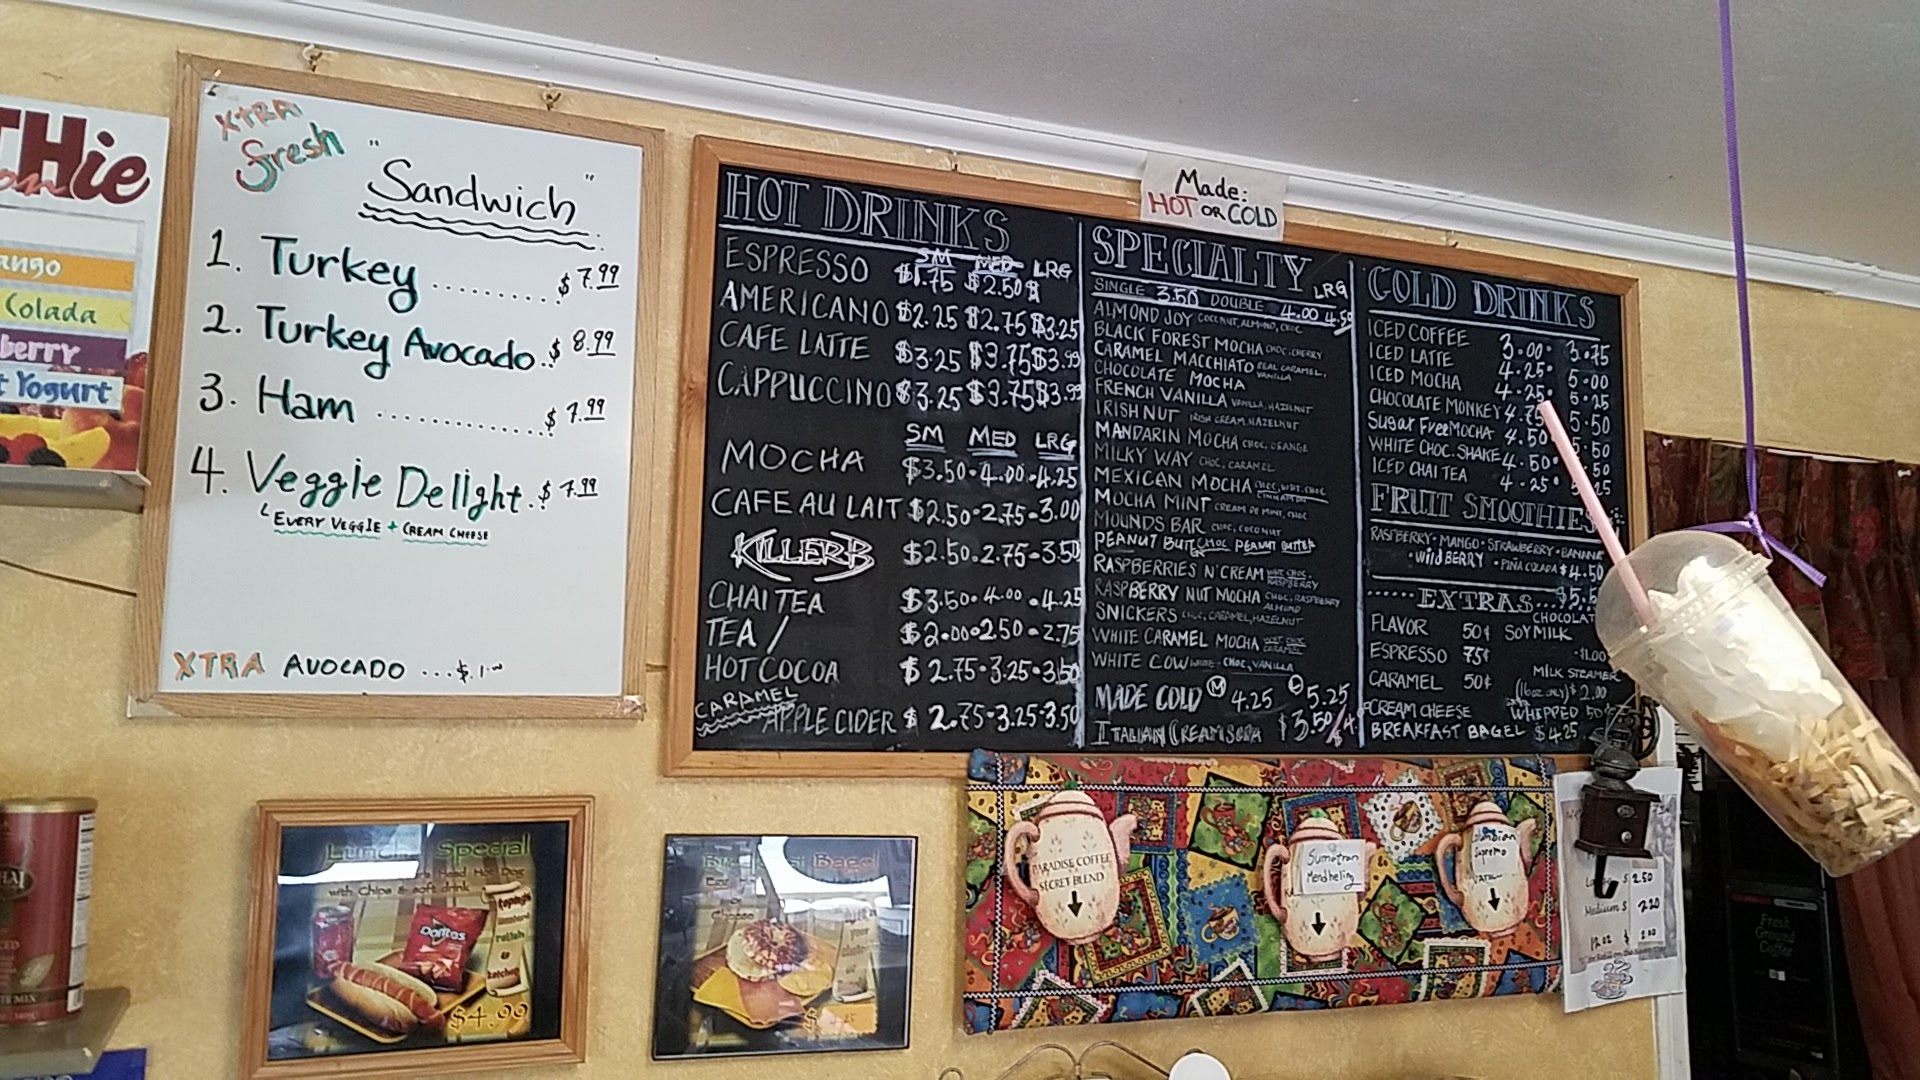 Hie
ango
Colada
berry
t Yogurt
XTRA
fresh
"Sandwich"
1. Turkey .......... $ 7.99
2. Turkey Avocado..$ 8.99
3. Ham .............. $ 7.99
4. Veggie Delight..$ 7.99
EVERY VEGGIE + CREAM CHEESE
XTRA AVOCADO ...$.1.00
HOT DRINKS
SM MED LRG
ESPRESSO $1.75 $2.50
AMERICANO $2.25 $2.75 $3.25
CAFE LATTE $3.25 $3.75 $3.99
CAPPUCCINO $3.25 $3.75 $3.99
SM MED LRG
MOCHA $3.50 • 4.00 • 4.25
CAFE AU LAIT $2.50 • 2.75 - 3.00
KILLER B $2.50 • 2.75 - 3.50
CHAI TEA $3.50 • 4.00 • 4.25
TEA / $2.00 • 2.50 • 2.75
HOT COCOA $ 2.75 • 3.25 • 3.50
CARAMEL
APPLE CIDER $ 2.75 • 3.25 • 3.50
Made:
HOT OR COLD
SPECIALTY LRG
SINGLE 3.50 DOUBLE 4.00 4.50
ALMOND JOY COCONUT, ALMOND, CHOC
BLACK FOREST MOCHA CHOC, CHERRY
CARAMEL MACCHIATO REAL CARAMEL, VANILLA
CHOCOLATE MOCHA
FRENCH VANILLA VANILLA, HAZELNUT
IRISH NUT IRISH CREAM, HAZELNUT
MANDARIN MOCHA CHOC, ORANGE
MILKY WAY CHOC, CARAMEL
MEXICAN MOCHA CHOC, WHT. CHOC CINNAMON
MOCHA MINT CREAM DE MINT, CHOC
MOUNDS BAR CHOC, COCONUT
PEANUT BUTTER CHOC PEANUT BUTTER
RASPBERRIES N' CREAM WHT. CHOC, RASPBERRY
RASPBERRY NUT MOCHA CHOC, RASPBERRY ALMOND
SNICKERS CHOC, CARAMEL, HAZELNUT
WHITE CARAMEL MOCHA WHT. CHOC CARAMEL
WHITE COW WHITE - CHOC, VANILLA
MADE COLD M 4.25 L 5.25
ITALIAN CREAM SODA $3.50
COLD DRINKS
ICED COFFEE 3.00 3.75
ICED LATTE 4.25 5.00
ICED MOCHA 4.25 5.25
CHOCOLATE MONKEY 4.75 5.50
Sugar Free MOCHA 4.50 5.50
WHITE CHOC. SHAKE 4.50
ICED CHAI TEA 4.25
FRUIT SMOOTHIES
RASPBERRY • MANGO • STRAWBERRY • BANANA
• Wild BERRY • PIÑA COLADA $4.50
EXTRAS
CHOCOLATE
FLAVOR 50¢ SOY MILK
ESPRESSO 75¢ $1.00
MILK STEAMER
CARAMEL 50¢ (16oz ONLY) $2.00
CREAM CHEESE WHIPPED 50¢
BREAKFAST BAGEL $4.25
Lunch Special
Head Hot Dog
with Chips & soft drink
toppings
mustard
relish
&
ketchup
Doritos
$4.99
Bagel
PARADISE COFFEE
SECRET BLEND
Sumatran
Mendheling
Colombian
Supremo
Large $ 2.50
Medium $ 2.20
12 oz $ 2.00
Fresh
Ground
Coffee